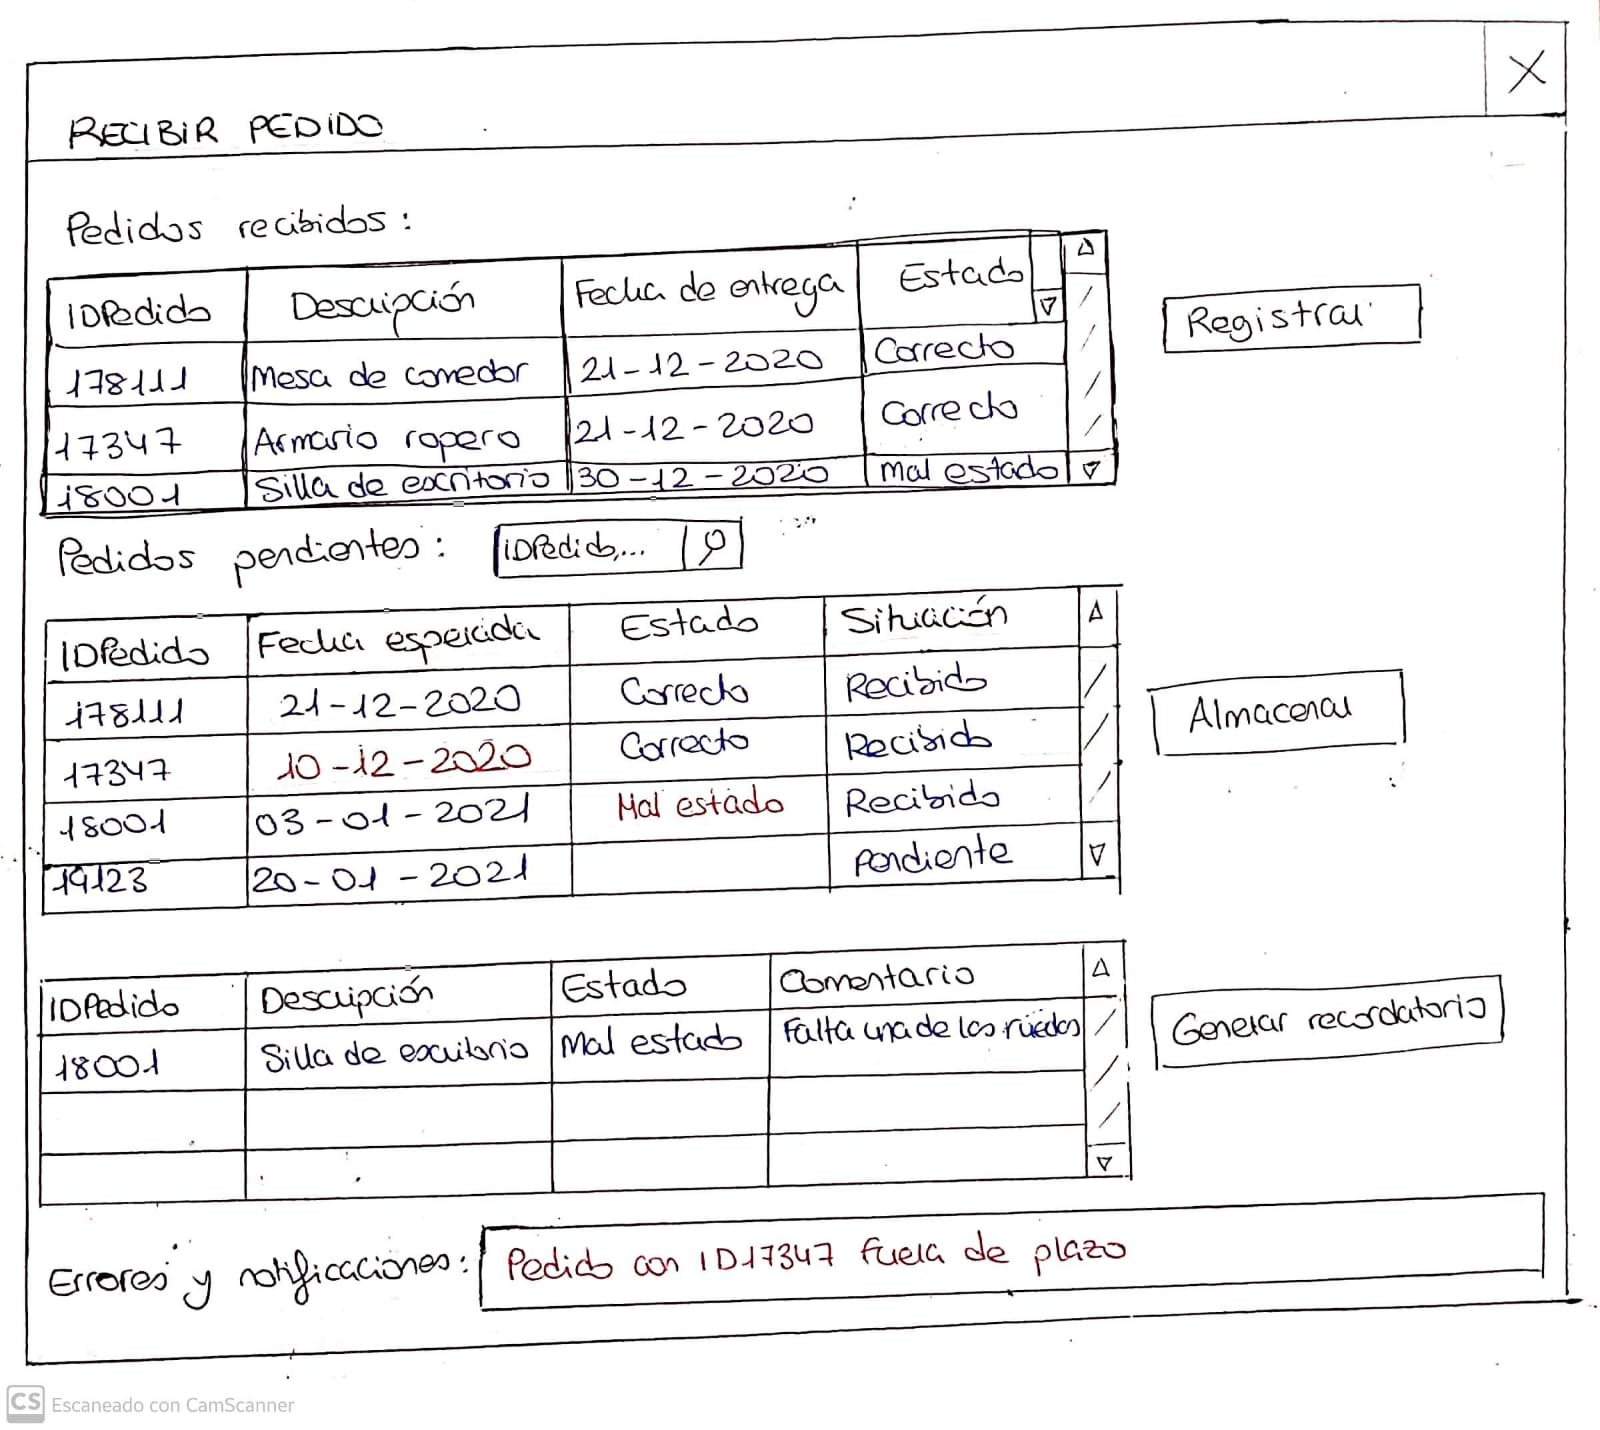 X
RECIBIR PEDIDO
Pedidos recibidos:
IDPedido Descripción Fecha de entrega Estado
178111 Mesa de comedor 21-12-2020 Correcto
17347 Armario ropero 21-12-2020 Correcto
18001 Silla de escritorio 30-12-2020 Mal estado
Registrar
Pedidos pendientes: IDPedido,...
IDPedido Fecha esperada Estado Situación
178111 21-12-2020 Correcto Recibido
17347 10-12-2020 Correcto Recibido
18001 03-01-2021 Mal estado Recibido
19123 20-01-2021 Pendiente
Almacenar
IDPedido Descripción Estado Comentario
18001 Silla de escritorio Mal estado Falta una de las ruedas
Generar recordatorio
Errores y notificaciones: Pedido con ID17347 fuera de plazo
CS Escaneado con CamScanner